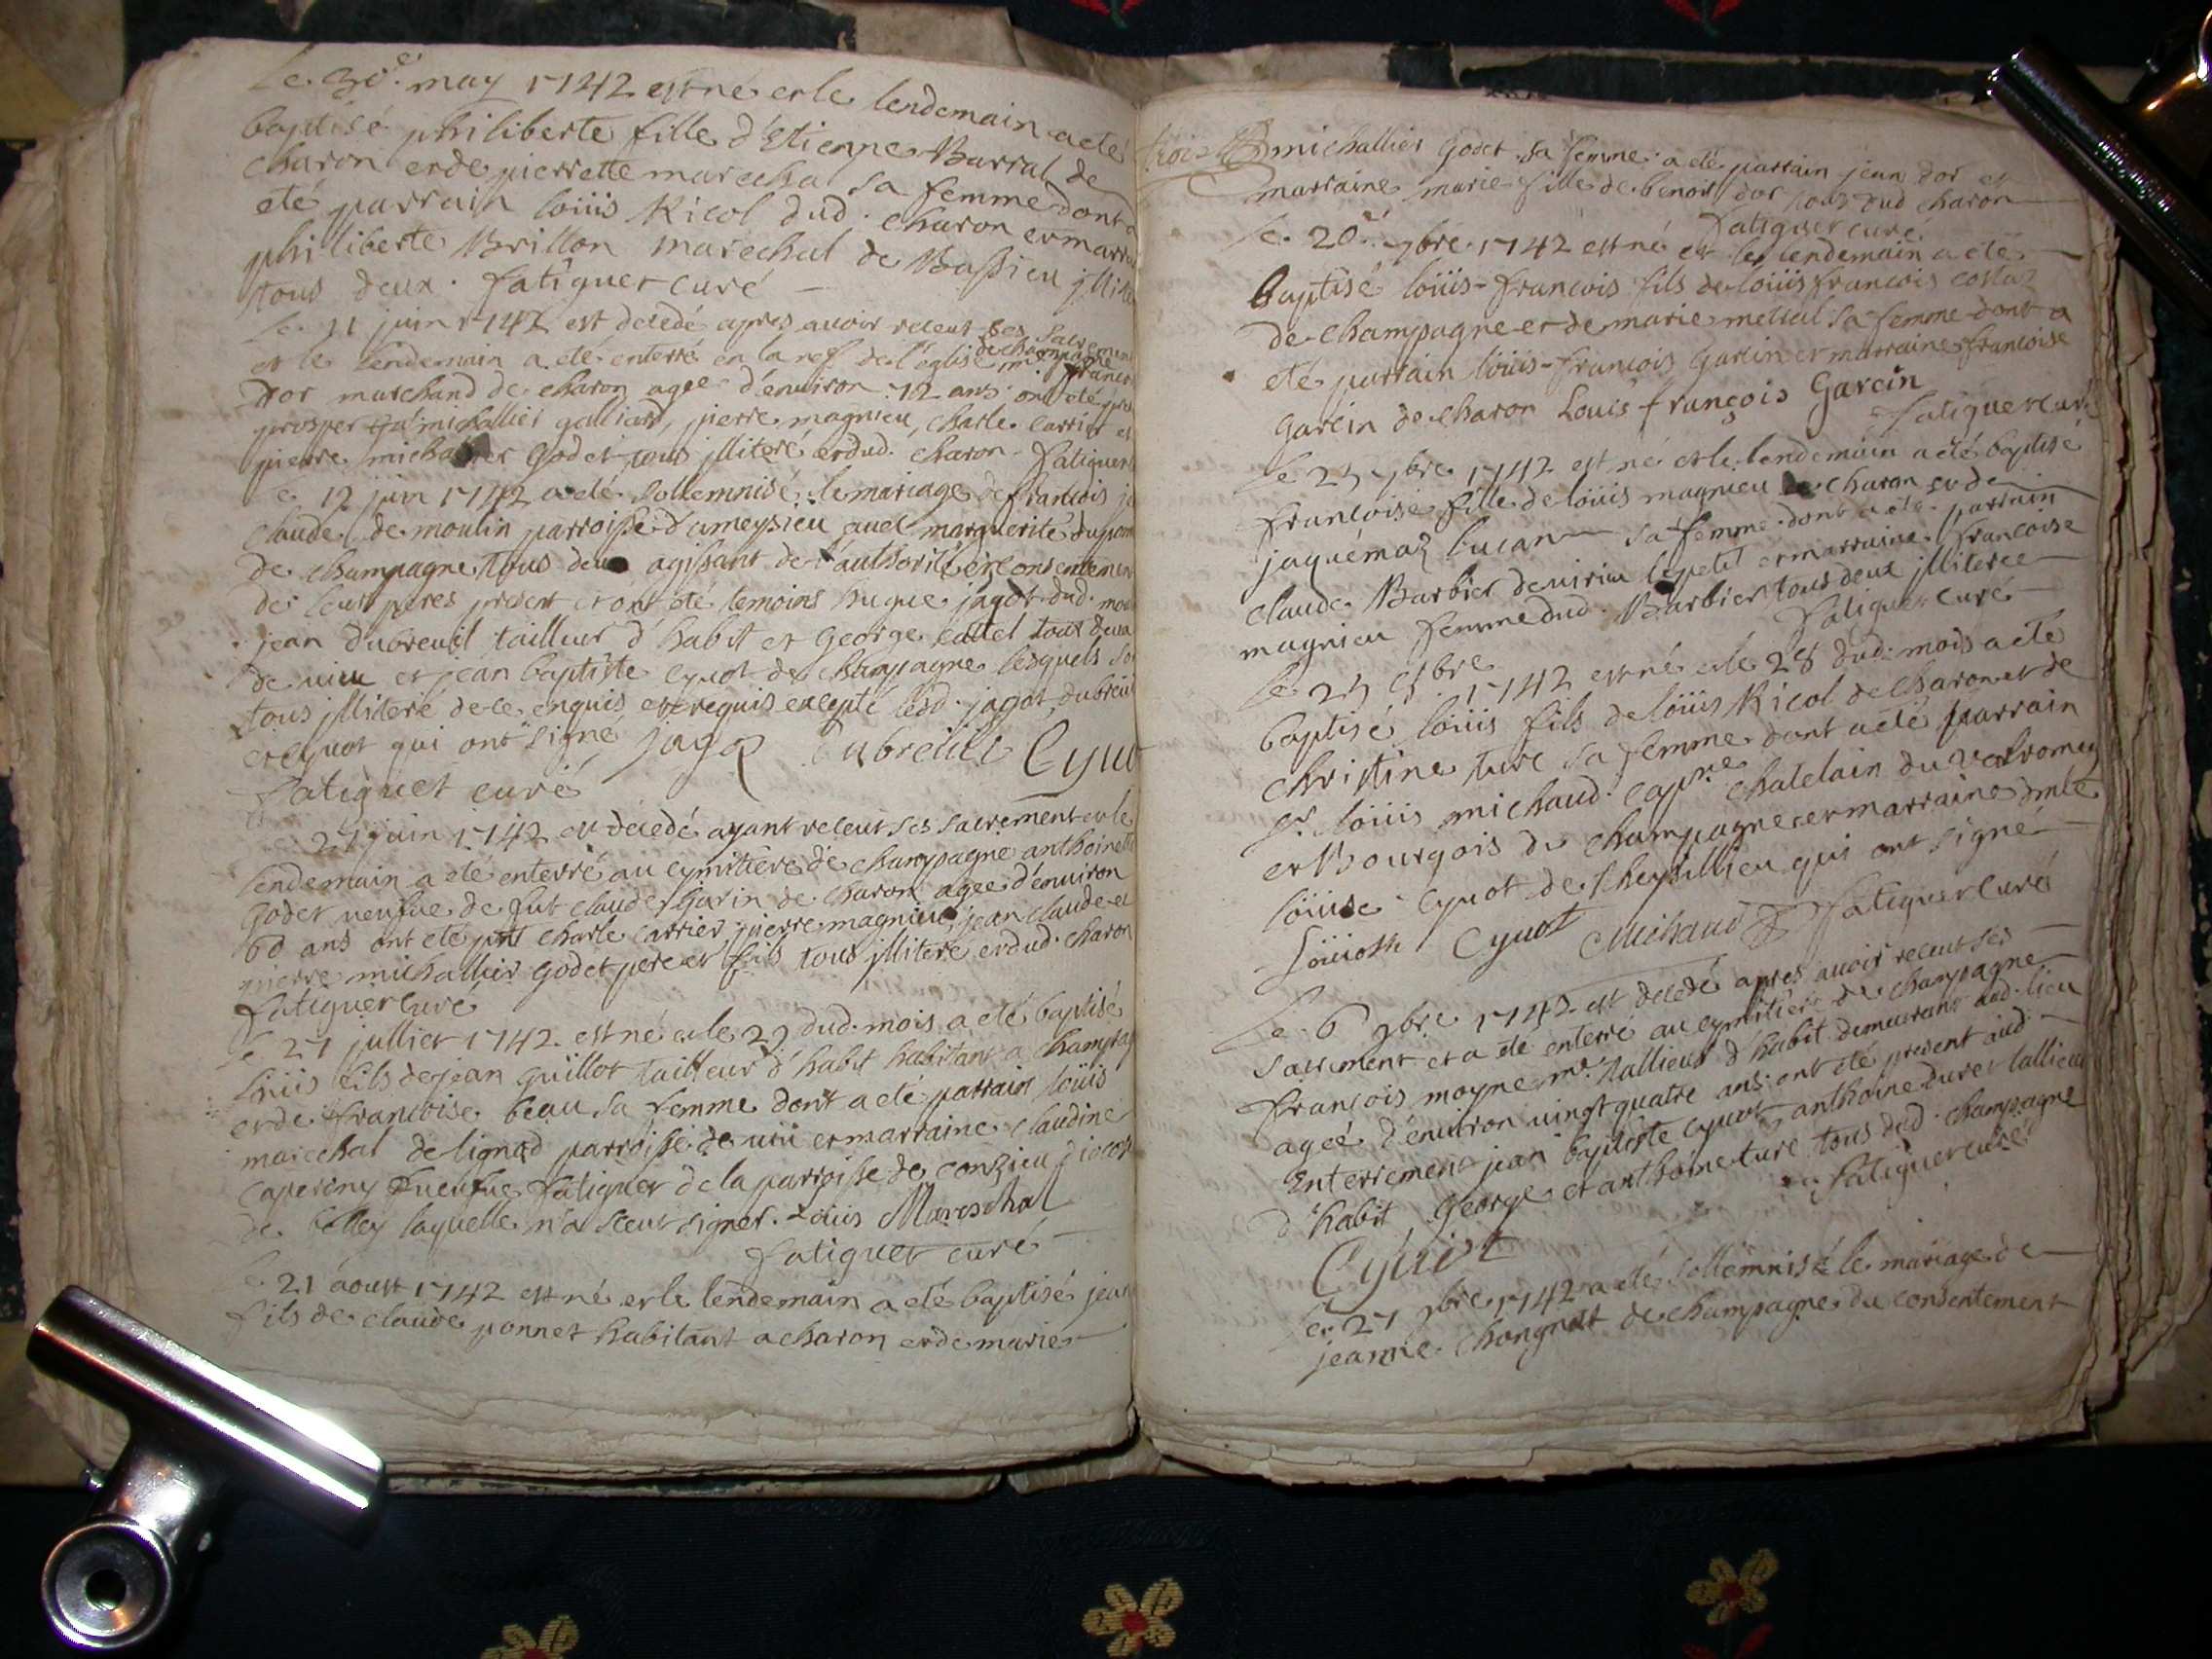 Le 30e may 1742 est né et le lendemain a eté
baptisé philiberte fille d'Etienne Barral de
charon et de pierrette marechal sa femme dont a
eté parrain loüis Ricol dud. charon et marra
philiberte Brillon marechal de Bassieu jllite
tous deux. fatiguet curé
Le 11 juin 1742 est decedé apres avoir receut ses sacrement
et le lendemain a eté enterré en la nef de l'église de champagne
Dor marchand de charon agee d'environ 72 ans ont eté
prosper michallier galliard, pierre magnieu, charle carrier et
pierre michallier Godet tous jlliteré et dud. charon fatiguet
Le 12 juin 1742 a eté sollemnisé le mariage de francois
claude de moulin parroisse d'ameysieu avec marguerite dupon
de champagne tous deux agissant de l'authorité et consentemen
de leur peres present et ont eté temoins hugue jagot dud.
jean dubreuil tailleur d'habit et George cattel tous deux
de uieu et jean baptiste cyuot de champagne lesquels
tous jlliteré de ce enquis et requis excepté led. jagot, dubreuil
et cyuot qui ont signé jagot Dubreuil Cyuo
fatiguet curé
27 juin 1742 est decedé ayant receut ses sacrement et le
lendemain a eté enterré au cymitiere de champagne anthoinette
Godet veufve de fut claude Garin de charon agee d'environ
60 ans ont eté pnt charle carrier pierre magnieu, jean claude et
pierre michallier Godet pere et fils tous jlliteré et dud. charon
fatiguet curé
Le 27 jullier 1742 est né et le 29 dud. mois a eté baptisé
loüis fils de jean Guillot tailleur d'habit habitant a champag
et de francoise beau sa femme dont a eté parrain loüis
marechal de lignod parroisse de uiu et marraine claudine
capereny veufve fatiguet de la parroisse de conzieu dioces
de belley laquelle n'a sceut signer. Louis Mareschal
fatiguet curé
Le 21 aoust 1742 est né et le lendemain a eté baptisé jean
fils de claude ponnet habitant a charon et de marie
michallier Godet sa femme a eté parrain jean dor et
marraine marie fille de benoit dor tous dud charon
fatiguet curé
Le 20e 7bre 1742 est né et le lendemain a eté
baptisé loüis-francois fils de loüis francois costaz
de champagne et de marie metral sa femme dont a
eté parrain loüis-francois Garcin et marraine francoise
Garcin de charon Louis françois Garcin
fatiguet curé
Le 25 7bre 1742 est né et le lendemain a eté baptisé
francoise fille de loüis magnieu de charon et de
jaquémaz lucan sa femme dont a eté parrain
claude Barbier de virieu le petit et marraine francoise
magnieu femme dud. Barbier tous deux jlliteree
fatiguet curé
Le 25 8bre 1742 est né et le 28 dud. mois a eté
baptisé loüis fils de loüis Ricol de charon et de
christine ture sa femme dont a eté parrain
sr. loüis michaud cap.ne chatelain du valromey
et Bourgois de champagne et marraine dmlle
loüise Cyuot de cheysillieu qui ont signé
Loüise Cyuot Michaud fatiguet curé
Le 6 9bre 1742 est decedé apres avoir receut ses
sacrement et a eté enterré au cymitier de champagne
françois moyne me. tallieur d'habit demeurant aud. lieu
ageé d'environ vingt quatre ans ont eté present aud.
Enterrement jean baptiste cyuot, anthoine duret tallieur
d'habit, George et anthoine ture tous dud. champagne
fatiguet curé
Cyuot
Le 27 9bre 1742 a eté sollemnisé le mariage de
jeanne Chongnat de champagne du consentement